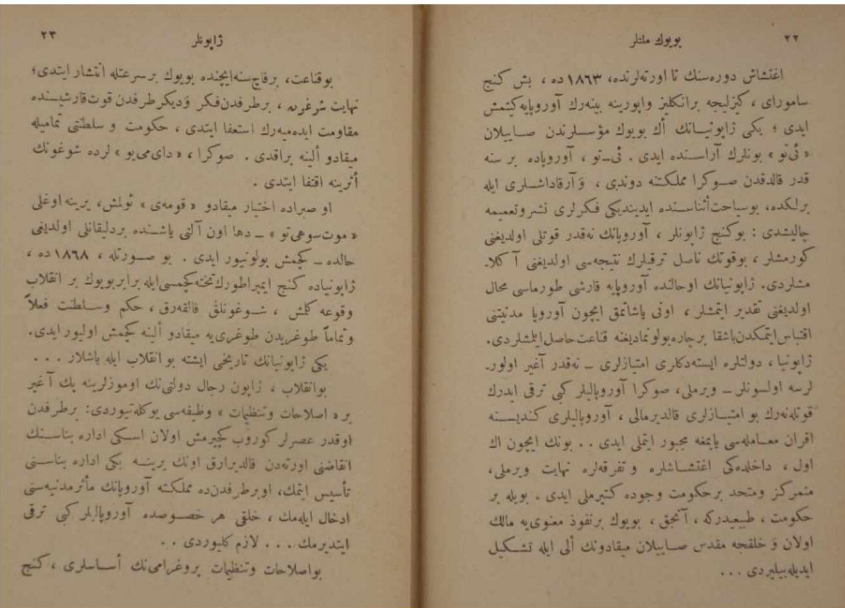 ٢٢
بویوك ملتلر
اغتشاش دوره‌سنك تا اورته‌لرنده، ١٨٦٣ ده ، بش كنج
سامورای ، كیزلیجه برانكلیز واپورینه بینه‌رك آوروپایه كیتمش
ایدی ؛ یكی ژاپونیانك اڭ بویوك مؤسسلرندن صاییلان
« ئی‌تو » بونلرك آراسنده ایدی . ئی‌تو ، آوروپاده بر سنه
قدر قالدقدن صوكرا مملكتنه دوندی ، و آرقاداشلری ایله
برلكده، بوسیاحت‌أثناسنده ایدیندیكی فكرلری نشروتعمیمه
چالیشدی : بوكنج ژاپونلر ، آوروپانك نه‌قدر قوتلی اولدیغنی
كورمشلر ، بوقوتك ناصل ترقیلرك نتیجه‌سی اولدیغنی آ كلا-
مشلردی. ژاپونیانك اوحالنده آوروپایه قارشی طورماسی محال
اولدیغنی تقدیر ایتمشلر ، اونی یاشاتمق ایچون آوروپا مدنیتنی
اقتباس‌ایتمكدن‌باشقا برچاره‌بولونمادیغنه قناعت‌حاصل‌ایلمشلردی.
ژاپونیا ، دولتلره ایسته‌دكلری امتیازلری ــ نه‌قدر آغیر اولور-
لرسه اولسونلر ــ ویرملی، صوكرا آوروپالیلر كبی ترقی ایدرك
قوتله‌نه‌رك بو امتیــازلری قالدیرمالی ، آوروپالیلری كندیسـنه
اقران معـامله‌سی یاپمغه مجبور ایتملی ایدی . . بونك ایچون اڭ
اول ، داخلده‌كی اغتشـاشلره و تفرقه‌لره نهایت ویرملی،
متمركز ومتحد برحكومت وجوده كتیرملی ایدی . بویله بر
حكومت ، طبیعیدركه ، آنجق ، بویوك برنفوذ معنوی‌یه مالك
اولان و خلقجه مقدس صــاییلان میقادونك ألی ایله تشــكیل
ایدیله‌بیلیردی . . .
ژاپونلر
٢٣
بوقناعت، برقاچ‌سنه‌ایچنده بویوك برسرعتله انتشار ایتدی؛
نهایت شوغون، برطرفدن‌فكر ودیكرطرفدن قوت‌قارشیسـنده
مقاومت ایده‌میه‌رك استعفا ایتدی ، حكومت و سلطنتی تمامیله
میقادو ألینه براقدی . صوكرا ، « دای‌می‌یو » لرده شوغونك
أثرینه اقتفا ایتدی .
او صیراده اختیار میقادو « قومه‌ی » ئولمش، یرینه‌اوغلی
« موت‌سوهی‌تو » ــ دها اون آلتی یاشـنده بردلیقانلی اولدیغی
حالده ــ كچمش بولونیور ایدی . بو صـورتله ، ١٨٦٨ ده ،
ژاپونیاده كنج ایمپراطورك‌تخته‌كچمسی‌ایله برابربویوك بر انقلاب
وقوعه كلمش ، شـوغونلق قالقه‌رق ، حكم وسـلطنت فعلاً
وتماماً طوغریدن طوغری‌یه میقادو ألینه كچمش اولیور ایدی.
یكی ژاپونیانك تاریخی ایشته بو انقلاب ایله باشلار . . .
بوانقلاب ، ژاپون رجال دولتی‌نك اوموزلرینه پك آغیر
بر « اصلاحات وتنظیمات » وظیفه‌سی یوكله‌تیوردی: برطرفدن
اوقدر عصرلر كوروب كچیرمش اولان اسـكی اداره بناسـنك
انقاضنی اورته‌دن قالدیرارق اونك یرینـه یكی اداره بناسـنی
تأسیس ایتمك، اوبرطرفدن‌ده مملكته آوروپانك مآثرمدنیه‌سنی
ادخال ایله‌مك ، خلقی هر خصـوصده آوروپالیلر كبی ترقی
ایتدیرمك . . . لازم كلیوردی . .
بواصلاحات وتنظیمات پروغرامی‌نك أسـاسلری ، كنج